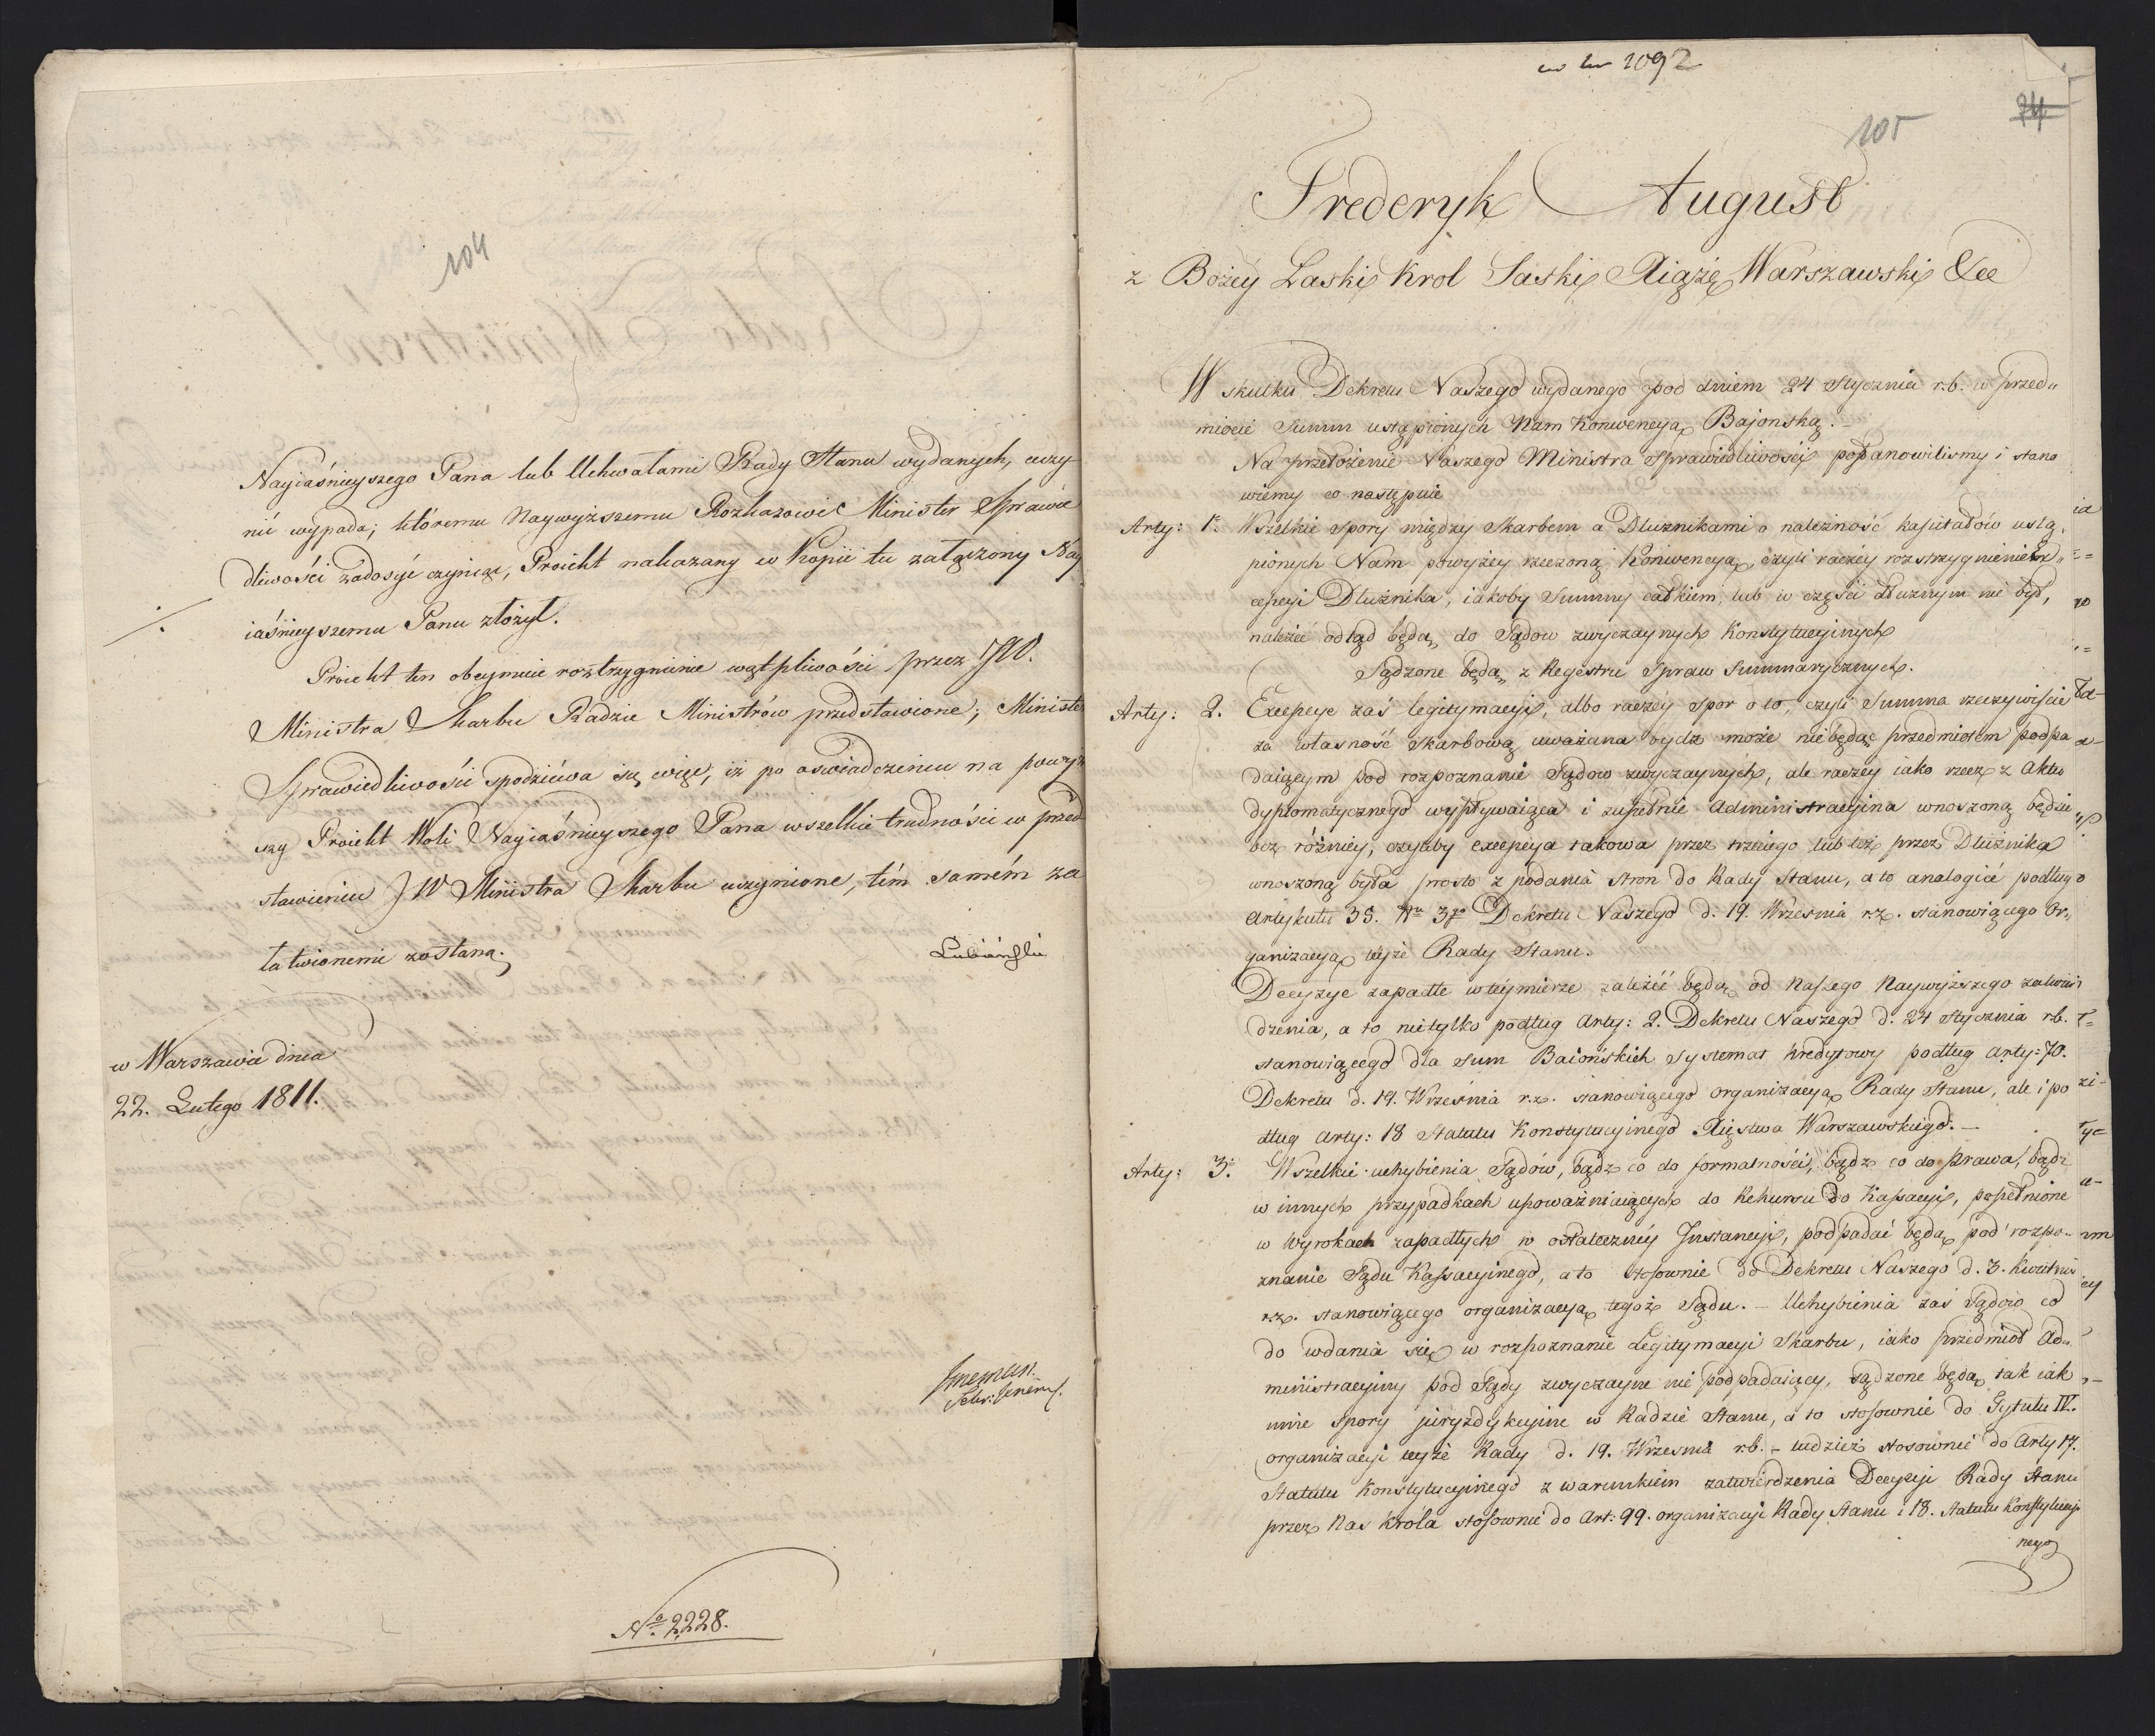 104
Nayiaśnieyszego Pana lub Uchwałami Rady Stanu wydanych, uczy-
nić wypada; któremu Naywyższemu Rozkazowi Minister Sprawie
dliwości zadosyć czyniąc, Proiekt nakazany w Kopii tu załączony Nay
iaśnieyszemu Panu złożył.
Proiekt ten obeymuie rozstrzygnienie wątpliwości przez JW.
Ministra Skarbu Radzie Ministrów przedstawione; Ministe
Sprawiedliwości spodziewa się więc, iż po oświadczeniu na powyż
szy Proiekt Woli Nayiaśnieyszego Pana wszelkie trudności w przed
stawieniu JW Ministra Skarbu uczynione, tém samém za
łatwionemi zostaną.
Łubieński
w Warszawie dnia
22. Lutego 1811.
Sekr: Generl.
No. 2228.
1092
105
74
Frederyk August
z Bożey Łaski Krol Saski Xiążę Warszawski &cc
W skutku Dekretu Naszego wydanego pod dniem 24 Stycznia r.b. w przed„
miocie Summ ustąpionych Nam Konwencyą Bajonską.
Na przełożenie Naszego Ministra Sprawiedliwości postanowilismy i stano
wiemy co następuie
Arty: 1o. Wszelkie spory między Skarbem a Dłużnikami o należność kapitałów ustą„
pionych Nam powyżey rzeczoną Konwencyą, czyli raczéy rozstrzygnienie Ex„
cepcyi Dłużnika, iakoby Summy całkiem, lub w części dłużnym nie był,
należeć odtąd będą do Sądow zwyczaynych Konstytucyinych
Sądzone będą z Regestru Spraw Summarycznych.
Arty: 2. Excepcye zaś legitymacyi, albo raczéy spor o to, czyli Summa rzeczywiście
za własność Skarbową uważana bydz może niebędąc przedmiotem podpa
daiącym pod rozpoznanie Sądow zwyczaynych, ale raczey iako rzecz z Aktu
dyplomatycznego wypływaiąca i zupełnie Administracyina wnoszoną będzie
bez różnicy, czyliby excepcya takowa przez trzeciego lub też przez Dłużnika
wnoszoną była prosto z podania stron do Rady Stanu, a to analogié podług
Artykułu 35. Nu 3o Dekretu Naszego d. 19. Wrzesnia r.z. stanowiącego Or„
ganizacyą teyże Rady Stanu.
Decyzye zapadłe w téy mierze zależéć będą od Naszego Naywyższego zatwier
dzenia, a to nietylko podług Arty: 2. Dekretu Naszego d. 24 Stycznia r.b.
stanowiącego dla Sum Baiońskich systemat kredytowy podług Arty: 70.
Dekretu d. 19. Września r.z. stanowiącego organizacyą Rady Stanu, ale i po
dług Arty: 18 Statutu Konstytucyinego Xięstwa Warszawskiego. —
Arty: 3o. Wszelkie uchybienia Sądów, bądz co do formalności, bądz co do Prawa, bądz
w innych przypadkach upoważniaiących do Rekursu do Kassacyi, popełnione
w Wyrokach zapadłych w ostateczney Instancyi, podpadać będą pod rozpo„
znanie Sądu Kassacyinego, a to stosownie do Dekretu Naszego d. 3. Kwietnia
r.z. stanowiącego organizacyą tegoż Sądu. — Uchybienia zaś Sądow co
do wdania się w rozpoznanie Legitymacyi Skarbu, iako przedmiot Ad„
ministracyiny pod Sądy zwyczayne nie podpadaiący, sądzone będą tak iak
inne spory juryzdykcyine w Radzie Stanu, a to stosownie do Tytułu IV.
organizacyi teyże Rady d. 19. Wrzesnia r.b. — tudzież stosownie do Arty 17.
Statutu Konstytucyinego z warunkiem zatwierdzenia Decyzyi Rady Stanu
przez Nas Króla stosownie do Art: 99. organizacyi Rady Stanu i 18. Statutu Konstytucyi
nego